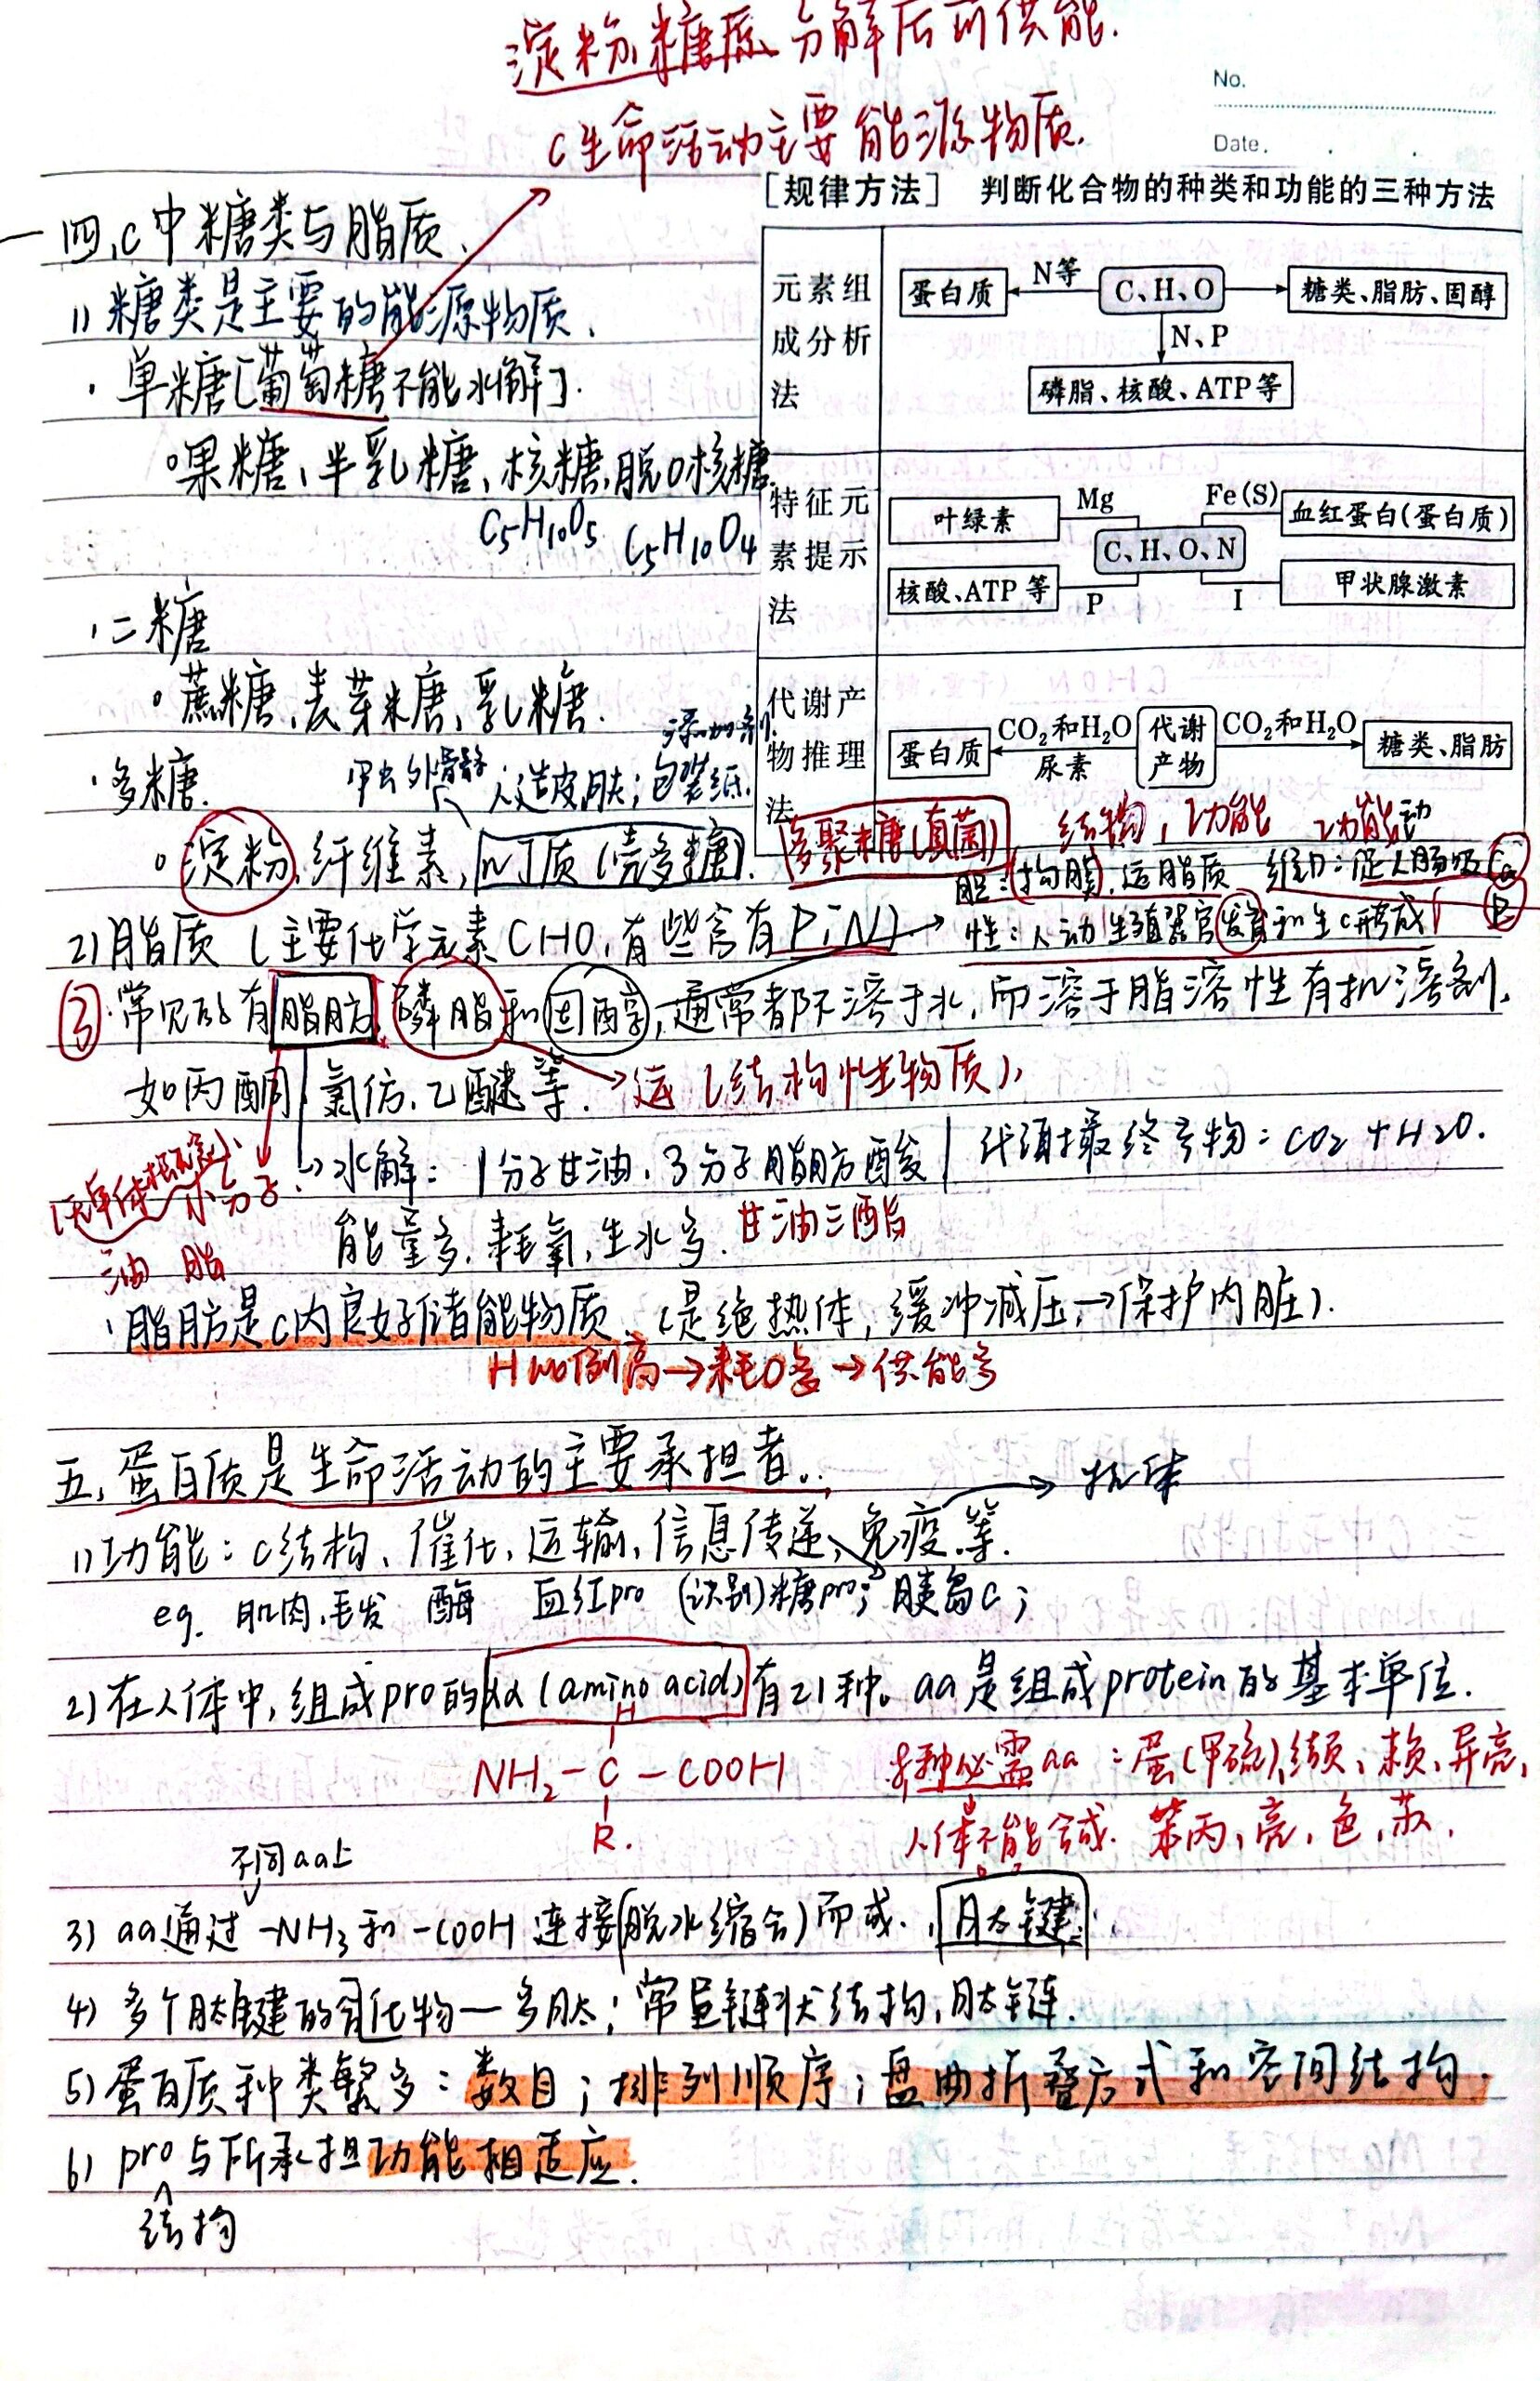 淀粉、糖原分解后可供能.
C生命活动主要能源物质.
No.
Date.
四、C中糖类与脂质.
1) 糖类是主要的能源物质.
·单糖[葡萄糖不能水解].
。果糖、半乳糖、核糖、脱O核糖.
C5H10O5 C5H10O4
·二糖
。蔗糖、麦芽糖、乳糖.
·多糖.
甲虫外骨骼 人造皮肤; 包装纸. 添加剂.
。淀粉、纤维素, 几丁质(壳多糖). 多聚糖(真菌)
[规律方法] 判断化合物的种类和功能的三种方法
元素组成分析法
蛋白质 N等 C、H、O 糖类、脂肪、固醇
N、P
磷脂、核酸、ATP等
特征元素提示法
叶绿素 Mg Fe(S) 血红蛋白(蛋白质)
C、H、O、N
核酸、ATP等 P I 甲状腺激素
代谢产物推理法
蛋白质 CO2和H2O 尿素 代谢产物 CO2和H2O 糖类、脂肪
结构, 功能 功能
胆:构膜, 运脂质 维D:促人肠吸Ca P
性:人动生殖器官发育和生C形成
2) 脂质 (主要化学元素CHO, 有些含有P;N)
③·常见的有脂肪, 磷脂和固醇, 通常都不溶于水, 而溶于脂溶性有机溶剂,
如丙酮、氯仿、乙醚等. (结构性物质)
水解: 1分子甘油, 3分子脂肪酸 代谢最终产物: CO2+H2O.
小分子.
能量多, 耗氧, 生水多. 甘油三酯
油 脂
·脂肪是C内良好储能物质. (是绝热体, 缓冲减压→保护内脏).
H比例高→耗O多→供能多
五, 蛋白质是生命活动的主要承担者.
抗体
1) 功能: C结构、催化、运输、信息传递、免疫等.
eg. 肌肉, 毛发 酶 血红pro (识别)糖pro; 胰岛C;
2) 在人体中, 组成pro的aa (amino acid) 有21种. aa是组成protein的基本单位.
H
NH2-C-COOH
R.
8种必需aa: 蛋(甲硫), 缬、赖、异亮,
人体不能合成. 苯丙, 亮, 色, 苏.
不同aa上
3) aa通过-NH3和-COOH连接(脱水缩合)而成. 肽键.
4) 多个肽键的化物—多肽; 常呈链状结构, 肽链.
5) 蛋白质种类繁多: 数目; 排列顺序; 盘曲折叠方式和空间结构.
6) pro与所承担功能相适应.
结构